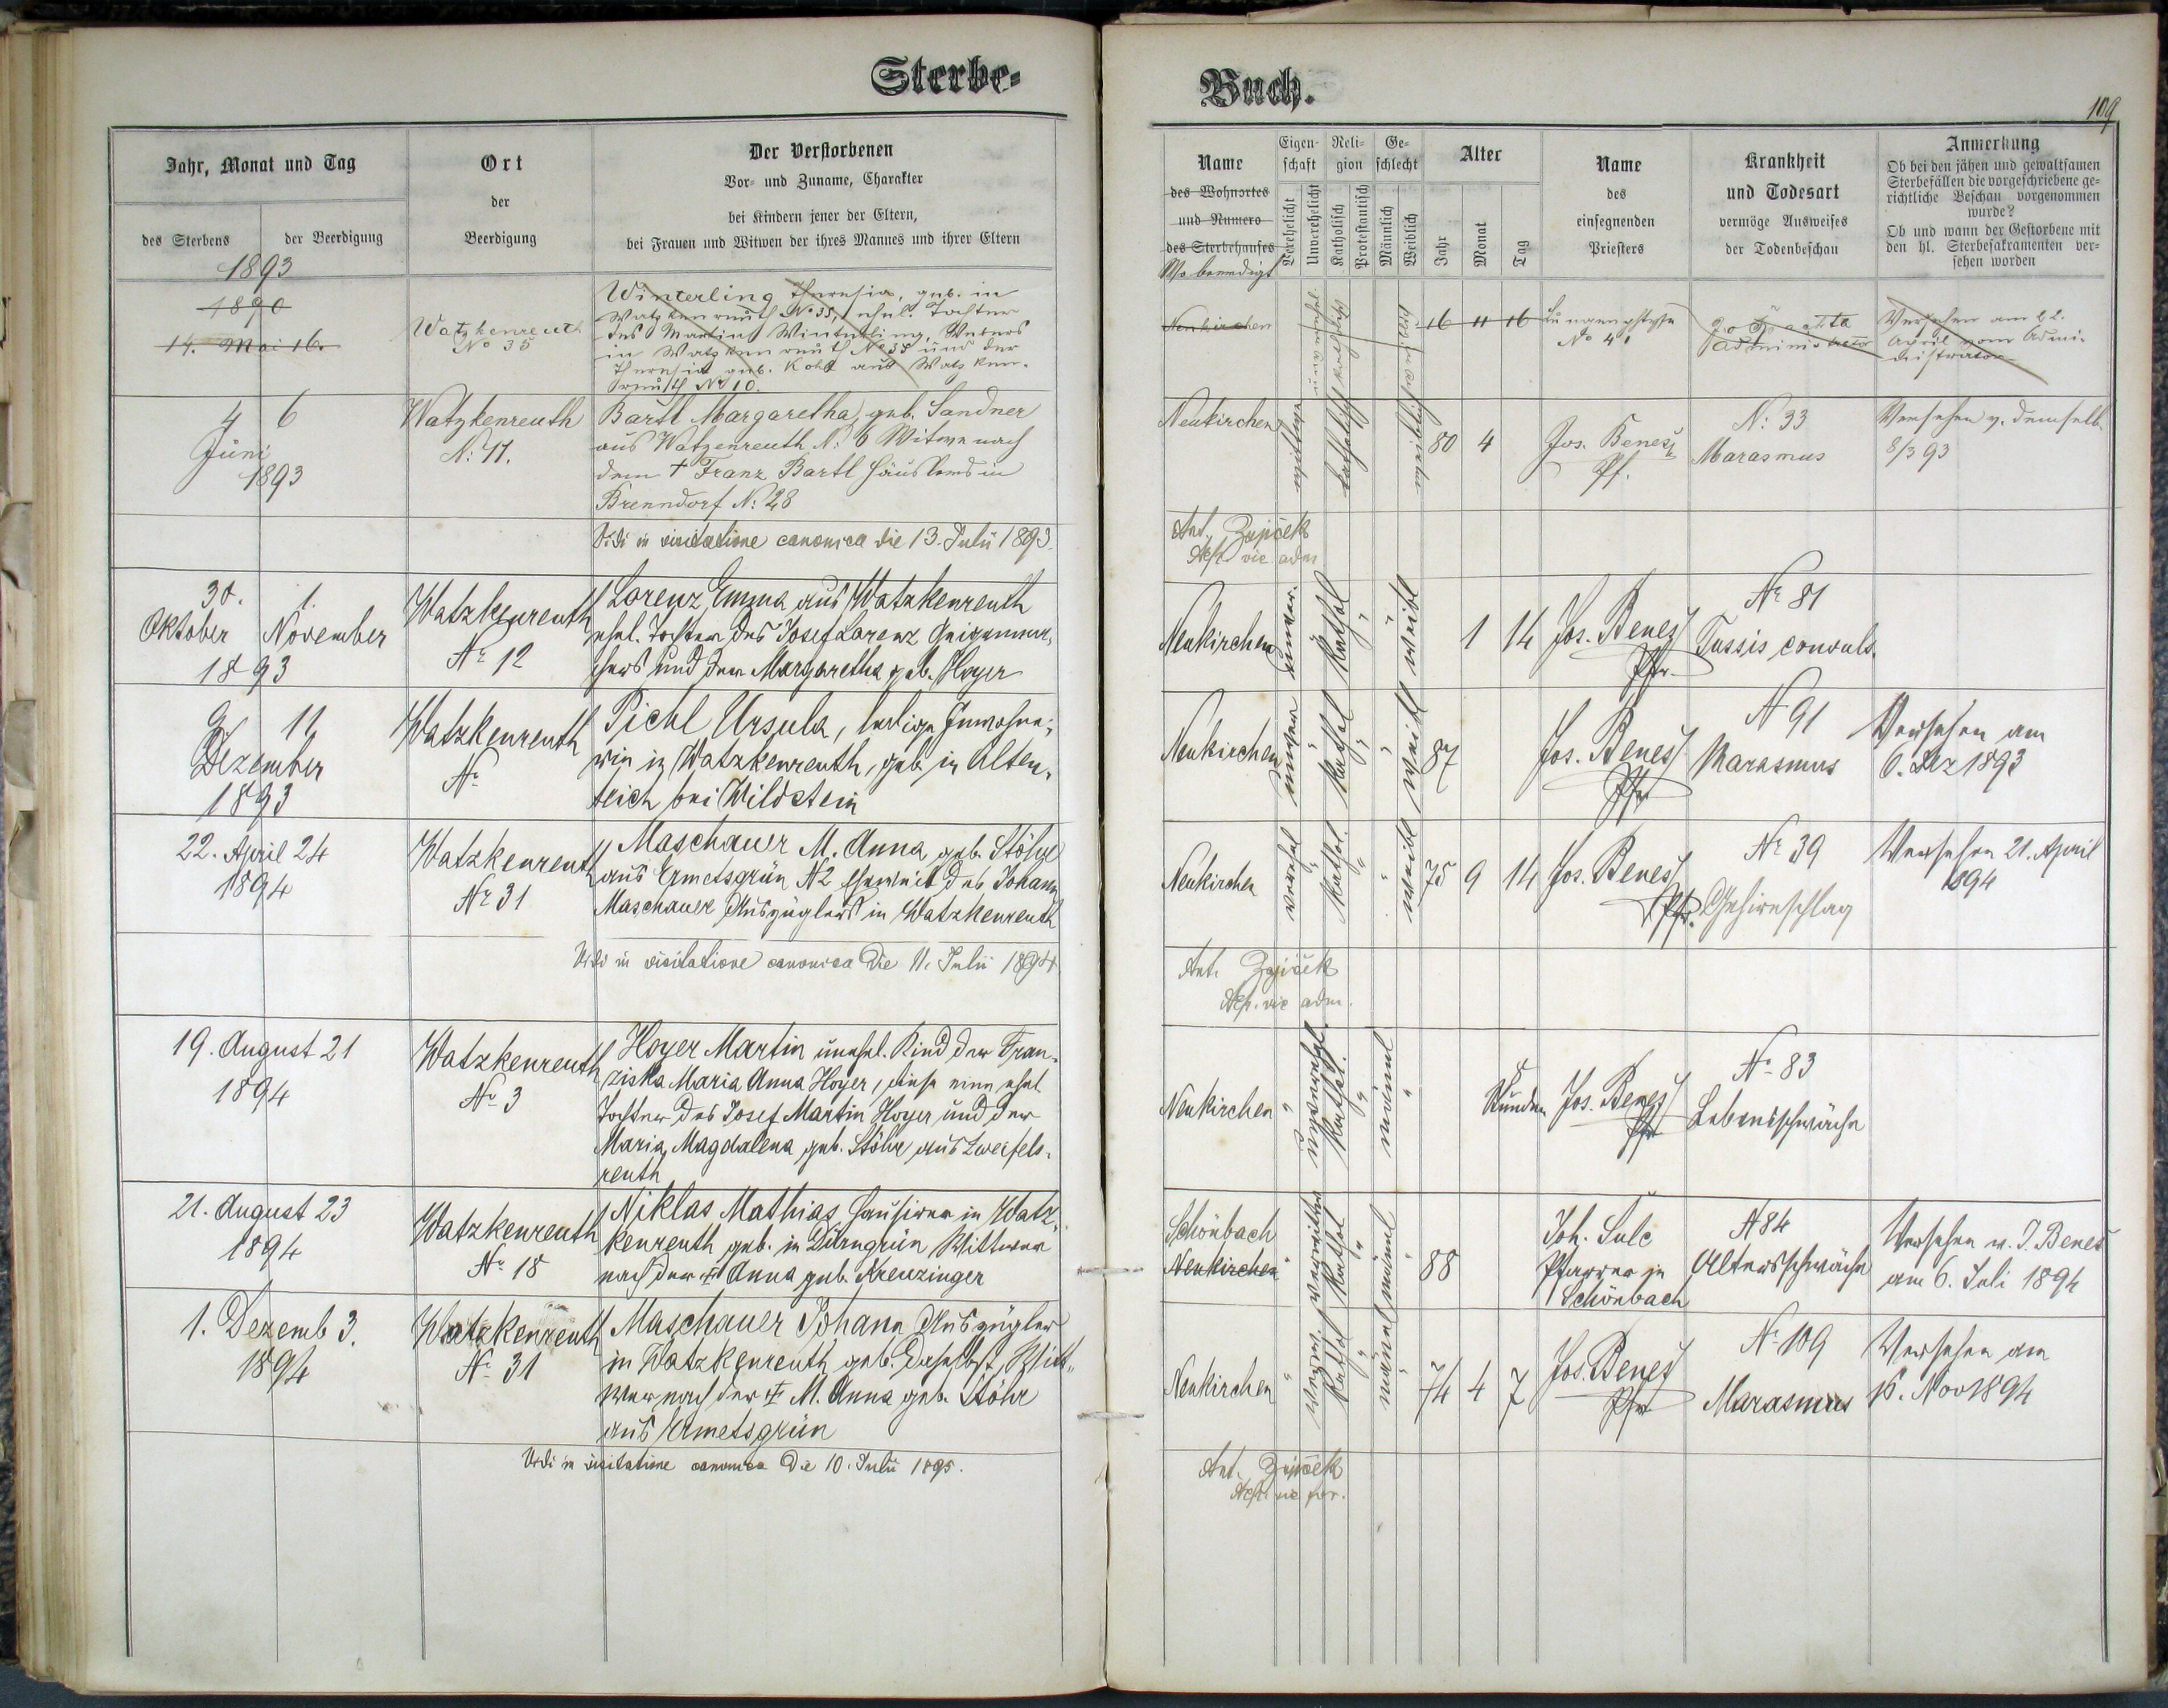 Sterbe-
Jahr, Monat und Tag
des Sterbens
der Beerdigung
Ort
der
Beerdigung
Der Verstorbenen
Vor- und Zuname, Charakter
bei Kindern jener der Eltern,
bei Frauen und Witwen der ihres Mannes und ihrer Eltern
1893
1890
14. Mai 16.
Watzkenreuth
No 35
Winterling Theresia, geb. in
Watzkenreuth No 35, ehel. Tochter
des Martin Winterling, Webers
in Watzkenreuth No 35 und der
Theresia geb. Kohl aus Watzken-
reuth No 10.
4 6
Juni
1893
Watzkenreuth
N: 17.
Bartl Margaretha, geb. Sandner
aus Watzenreuth N: 6 Witwe nach
dem † Franz Bartl Häuslers in
Brenndorf N: 28
Vidi in visitatione canonica die 13. Julii 1893.
30. 1.
Oktober November
1893
Watzkenreuth
No 12
Lorenz Emma aus Watzkenreuth
ehel. Tochter des Josef Lorenz Geigenma-
chers und der Margaretha geb. Hoyer
9 11
Dezember
1893
Watzkenreuth
No
Pichl Ursula, ledige Inwohne-
rin in Watzkenreuth, geb. in Alten-
teich bei Wildstein
22. April 24
1894
Watzkenreuth
No 31
Maschauer M. Anna geb. Stöhr
aus Ermetsgrün N 2 Eheweib des Johann
Maschauer Auszüglers in Watzkenreuth
Vidi in visitatione canonica die 11. Julii 1894
19. August 21
1894
Watzkenreuth
No 3
Hoyer Martin unehel. Kind der Fran-
ziska Maria Anna Hoyer, diese eine ehel
Tochter des Josef Martin Hoyer und der
Maria Magdalena geb. Stöhr aus Zweifels-
reuth
21. August 23
1894
Watzkenreuth
No 18
Niklas Mathias Hausirer in Watz-
kenreuth geb. in Dürngrün Wittwer
nach der † Anna geb. Kreuzinger
1. Dezemb 3.
1894
Watzkenreuth
No 31
Maschauer Johann Auszügler
in Watzkenreuth geb. daselbst, Witt-
wer nach der † M. Anna geb. Stöhr
aus Ermetsgrün
Vidi in visitatione canonica die 10. Julii 1895.
Buch.
109
Name
des Wohnortes
und Numero
des Sterbehauses
Wo beerdigt
Eigen-
schaft
Verehelicht
Unverehelicht
Reli-
gion
Katholisch
Protestantisch
Ge-
schlecht
Männlich
Weiblich
Alter
Jahr
Monat
Tag
Name
des
einsegnenden
Priesters
Krankheit
und Todesart
vermöge Ausweises
der Todenbeschau
Anmerkung
Ob bei den jähen und gewaltsamen
Sterbefällen die vorgeschriebene ge-
richtliche Beschau vorgenommen
wurde?
Ob und wann der Gestorbene mit
den hl. Sterbesakramenten ver-
sehen worden
Neukirchen
unverehel.
katholisch
weiblich
16 11 16
No 41
Administrator
Versehen am 22.
April vom Admi-
nistrator
Neukirchen
Wittwe
katholisch
weiblich
80 4
Jos. Benesch
Pf.
N: 33
Marasmus
Versehen v. demselb.
8/3 93
Ant. Zajíček
vic. adm
Neukirchen
unver.
Kathol
weibl
1 14
Jos. Beneš
Pfr.
No 81
Tussis convuls.
Neukirchen
unver
Kathol
weibl
87
Jos. Beneš
Pfr
N 91
Marasmus
Versehen am
6. Dez 1893
Neukirchen
verehel
Kathol.
weibl
75 9 14
Jos. Beneš
Pfr.
No 39
Gehirnschlag
Versehen 21. April
1894
Ant. Zajíček
vic adm.
Neukirchen
unverehel
Kathol.
männl
8
Stunden
Jos. Beneš
Pfr
No 83
Lebensschwäche
Schönbach
Neukirchen
verwittw
Kathol
männl
88
Joh. Sulc
Pfarrer in
Schönbach
N 84
Altersschwäche
Versehen v. J. Beneš
am 6. Juli 1894
Neukirchen
Kathol
männl
74 4 7
Jos. Beneš
Pfr
No 109
Marasmus
Versehen am
16. Nov 1894
Ant. Zajíček